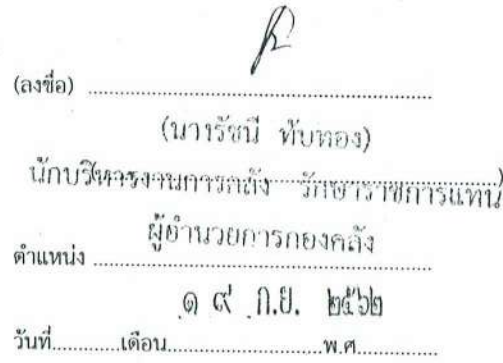 (ลงชื่อ) ........................................
(นางรัชนี ทับทอง)
นักบริหารงานการคลัง รักษาราชการแทน
ผู้อำนวยการกองคลัง
ตำแหน่ง ........................................
๑ ๙ ก.ย. ๒๕๖๒
วันที่............เดือน........................พ.ศ..............